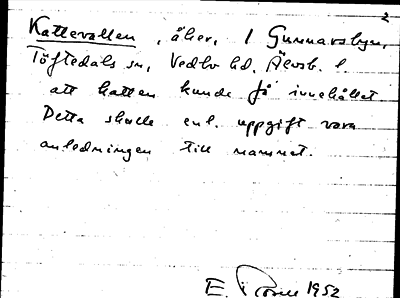 2
Kattevallen, åker, / Gunnarsbyn,
Töftedals sn, Vedbo hd, Älvsb. l.
att katten kunde få innehållet
Detta skulle enl. uppgift vara
anledningen till namnet.
E. 1952